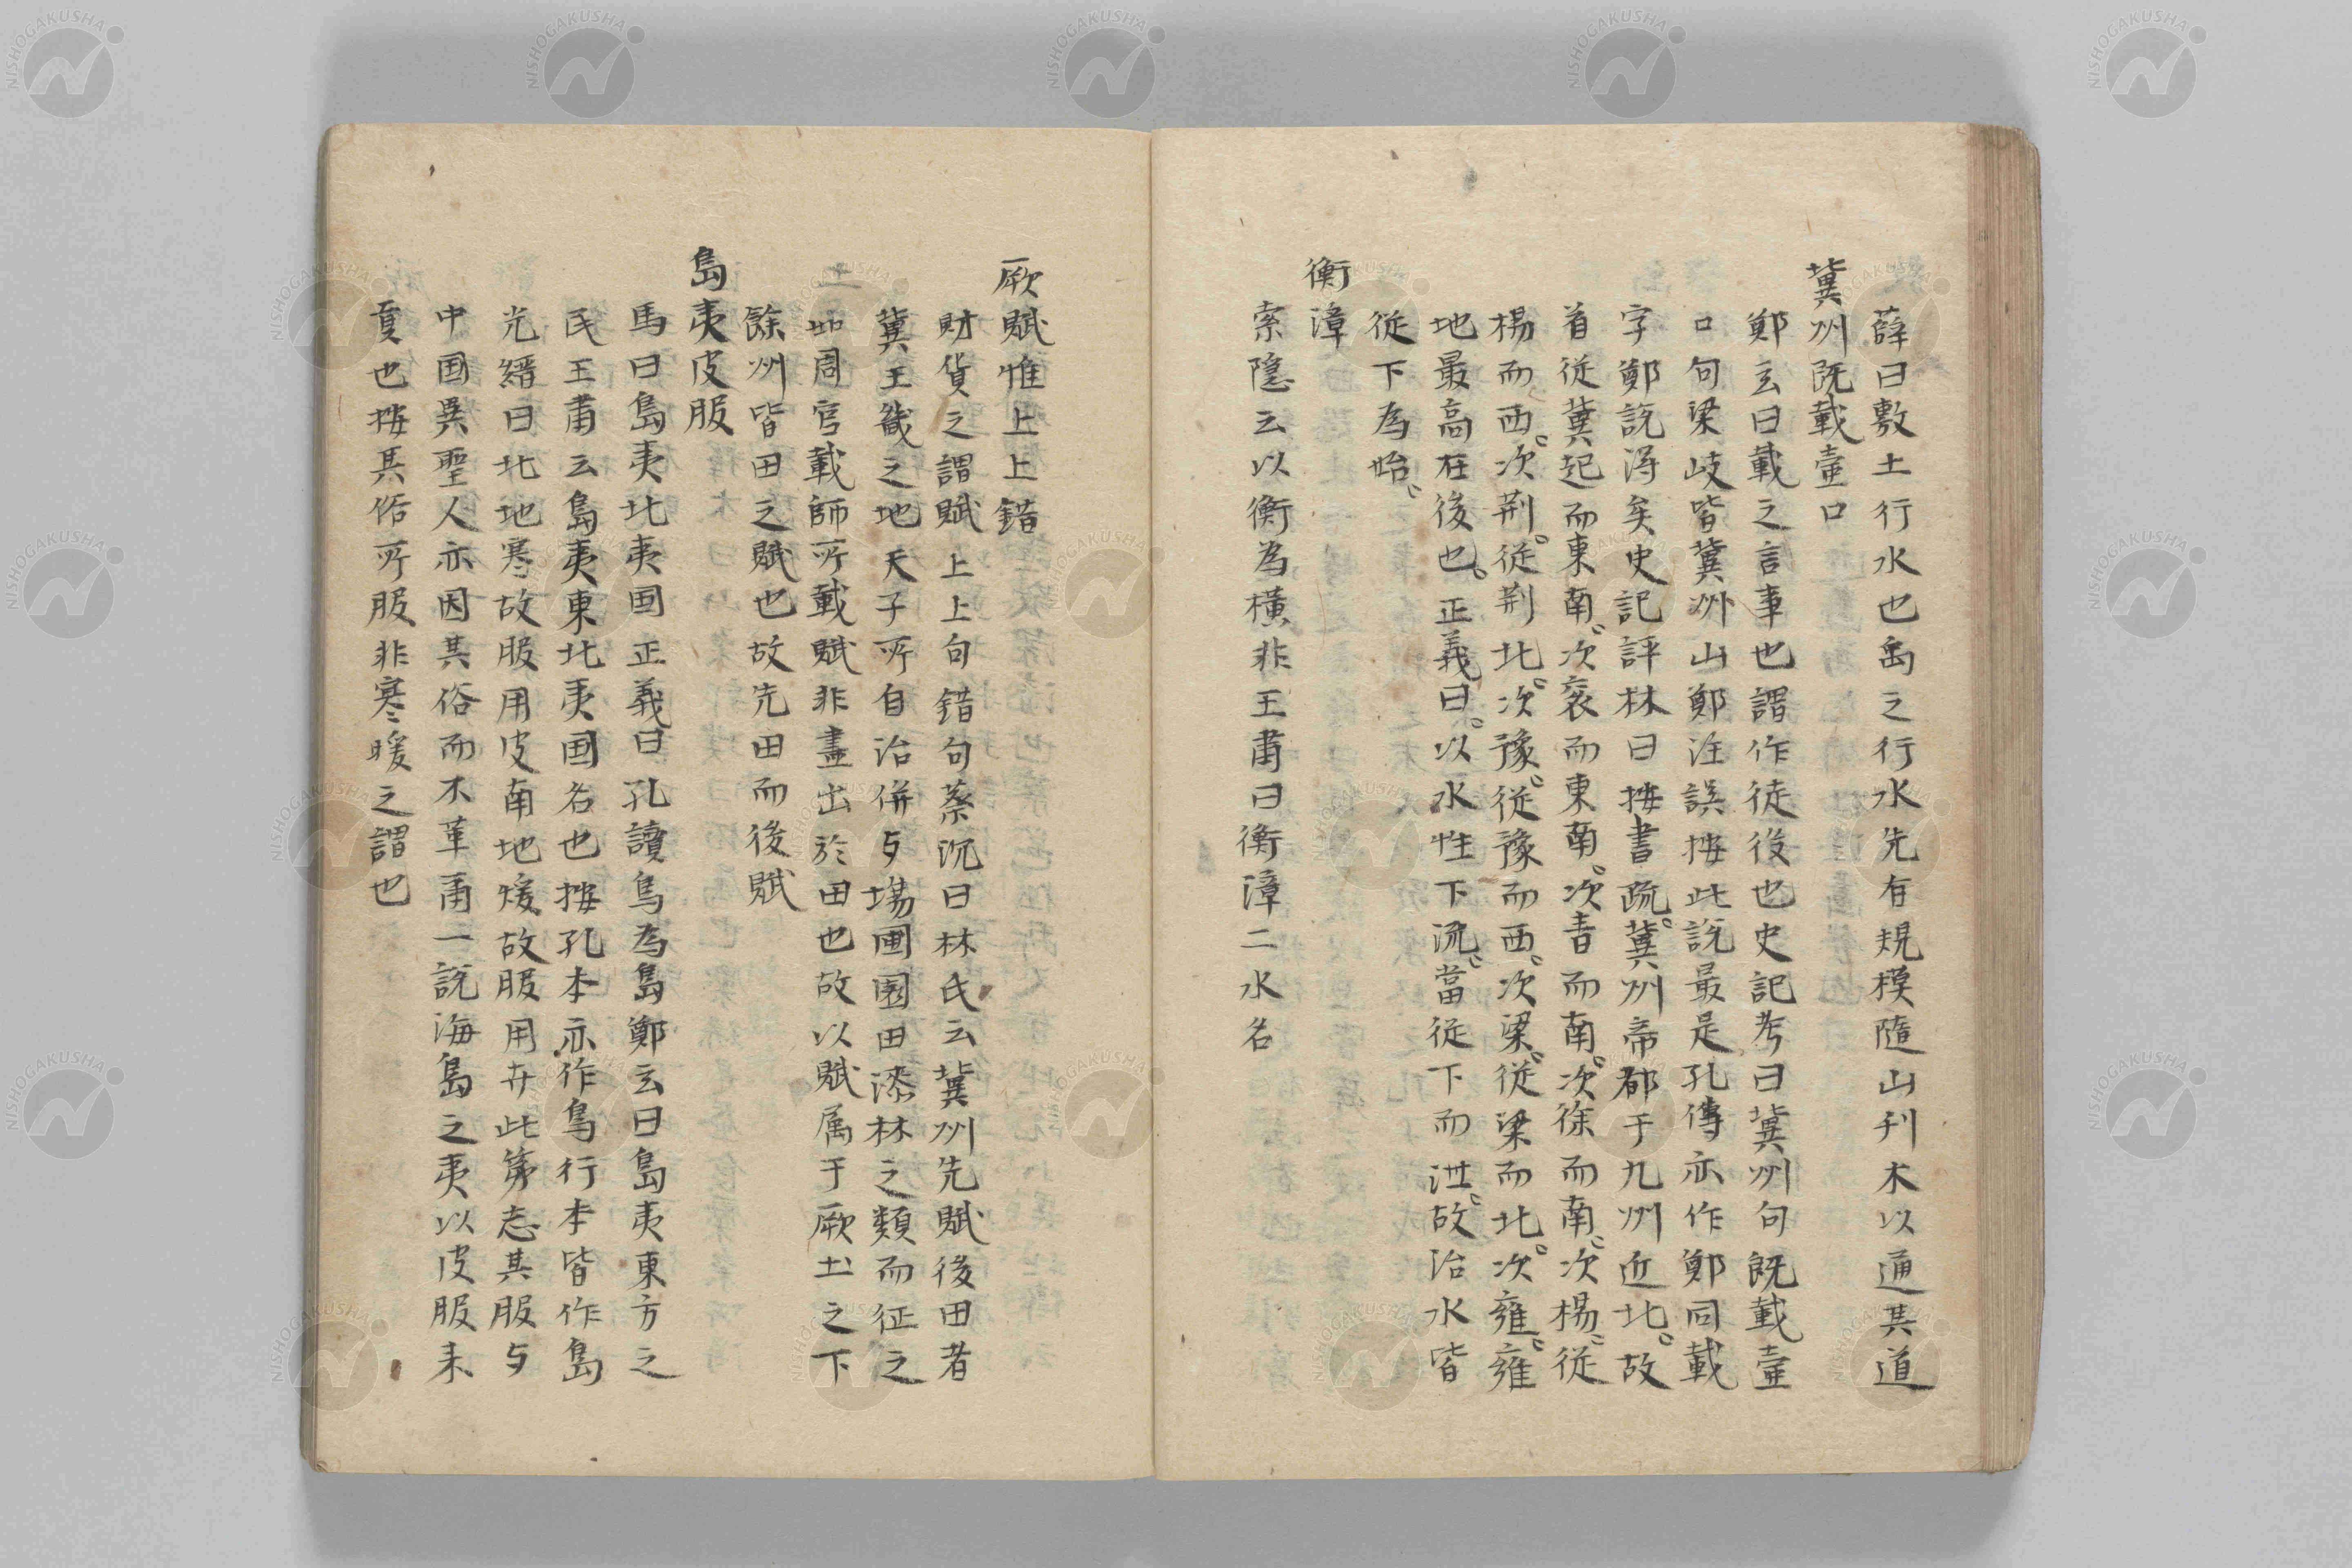 薛曰敷土行水也禹之行水先有規模隨山刊木以通其道
冀州既載壺口
鄭玄曰載之言事也謂作徒役也史記考曰冀州句既載壺
口句梁岐皆冀州山鄭注誤按此説最是孔傳亦作鄭同載
字鄭説得矣史記評林曰按書疏冀州帝都于九州近北故
首従冀起而東南次兖而東南次青而南次徐而南次楊従
楊而西次荆従荆北次豫従豫而西次梁従梁而北次雍雍
地最高在後也正義曰以水性下流當従下而泄故治水皆
従下為始
衡漳
索隠云以衡為橫非王肅曰衡漳二水名
厥賦惟上上錯
財貨之謂賦上上句錯句蔡沉曰林氏云冀州先賦後田者
冀王畿之地天子所自治併与場圃園田漆林之類而征之
如周官載師所載賦非盡出於田也故以賦属于厥土之下
餘州皆田之賦也故先田而後賦
島夷皮服
馬曰島夷北夷国正義曰孔讀鳥為島鄭玄曰島夷東方之
民王肅云島夷東北夷国名也按孔本亦作鳥行本皆作島
光縉曰北地寒故服用皮南地煖故服用卉此第志其服与
中国異聖人亦因其俗而不革甫一説海島之夷以皮服来
夏也按其俗所服非寒暖之謂也
NISHOGAKUSHA